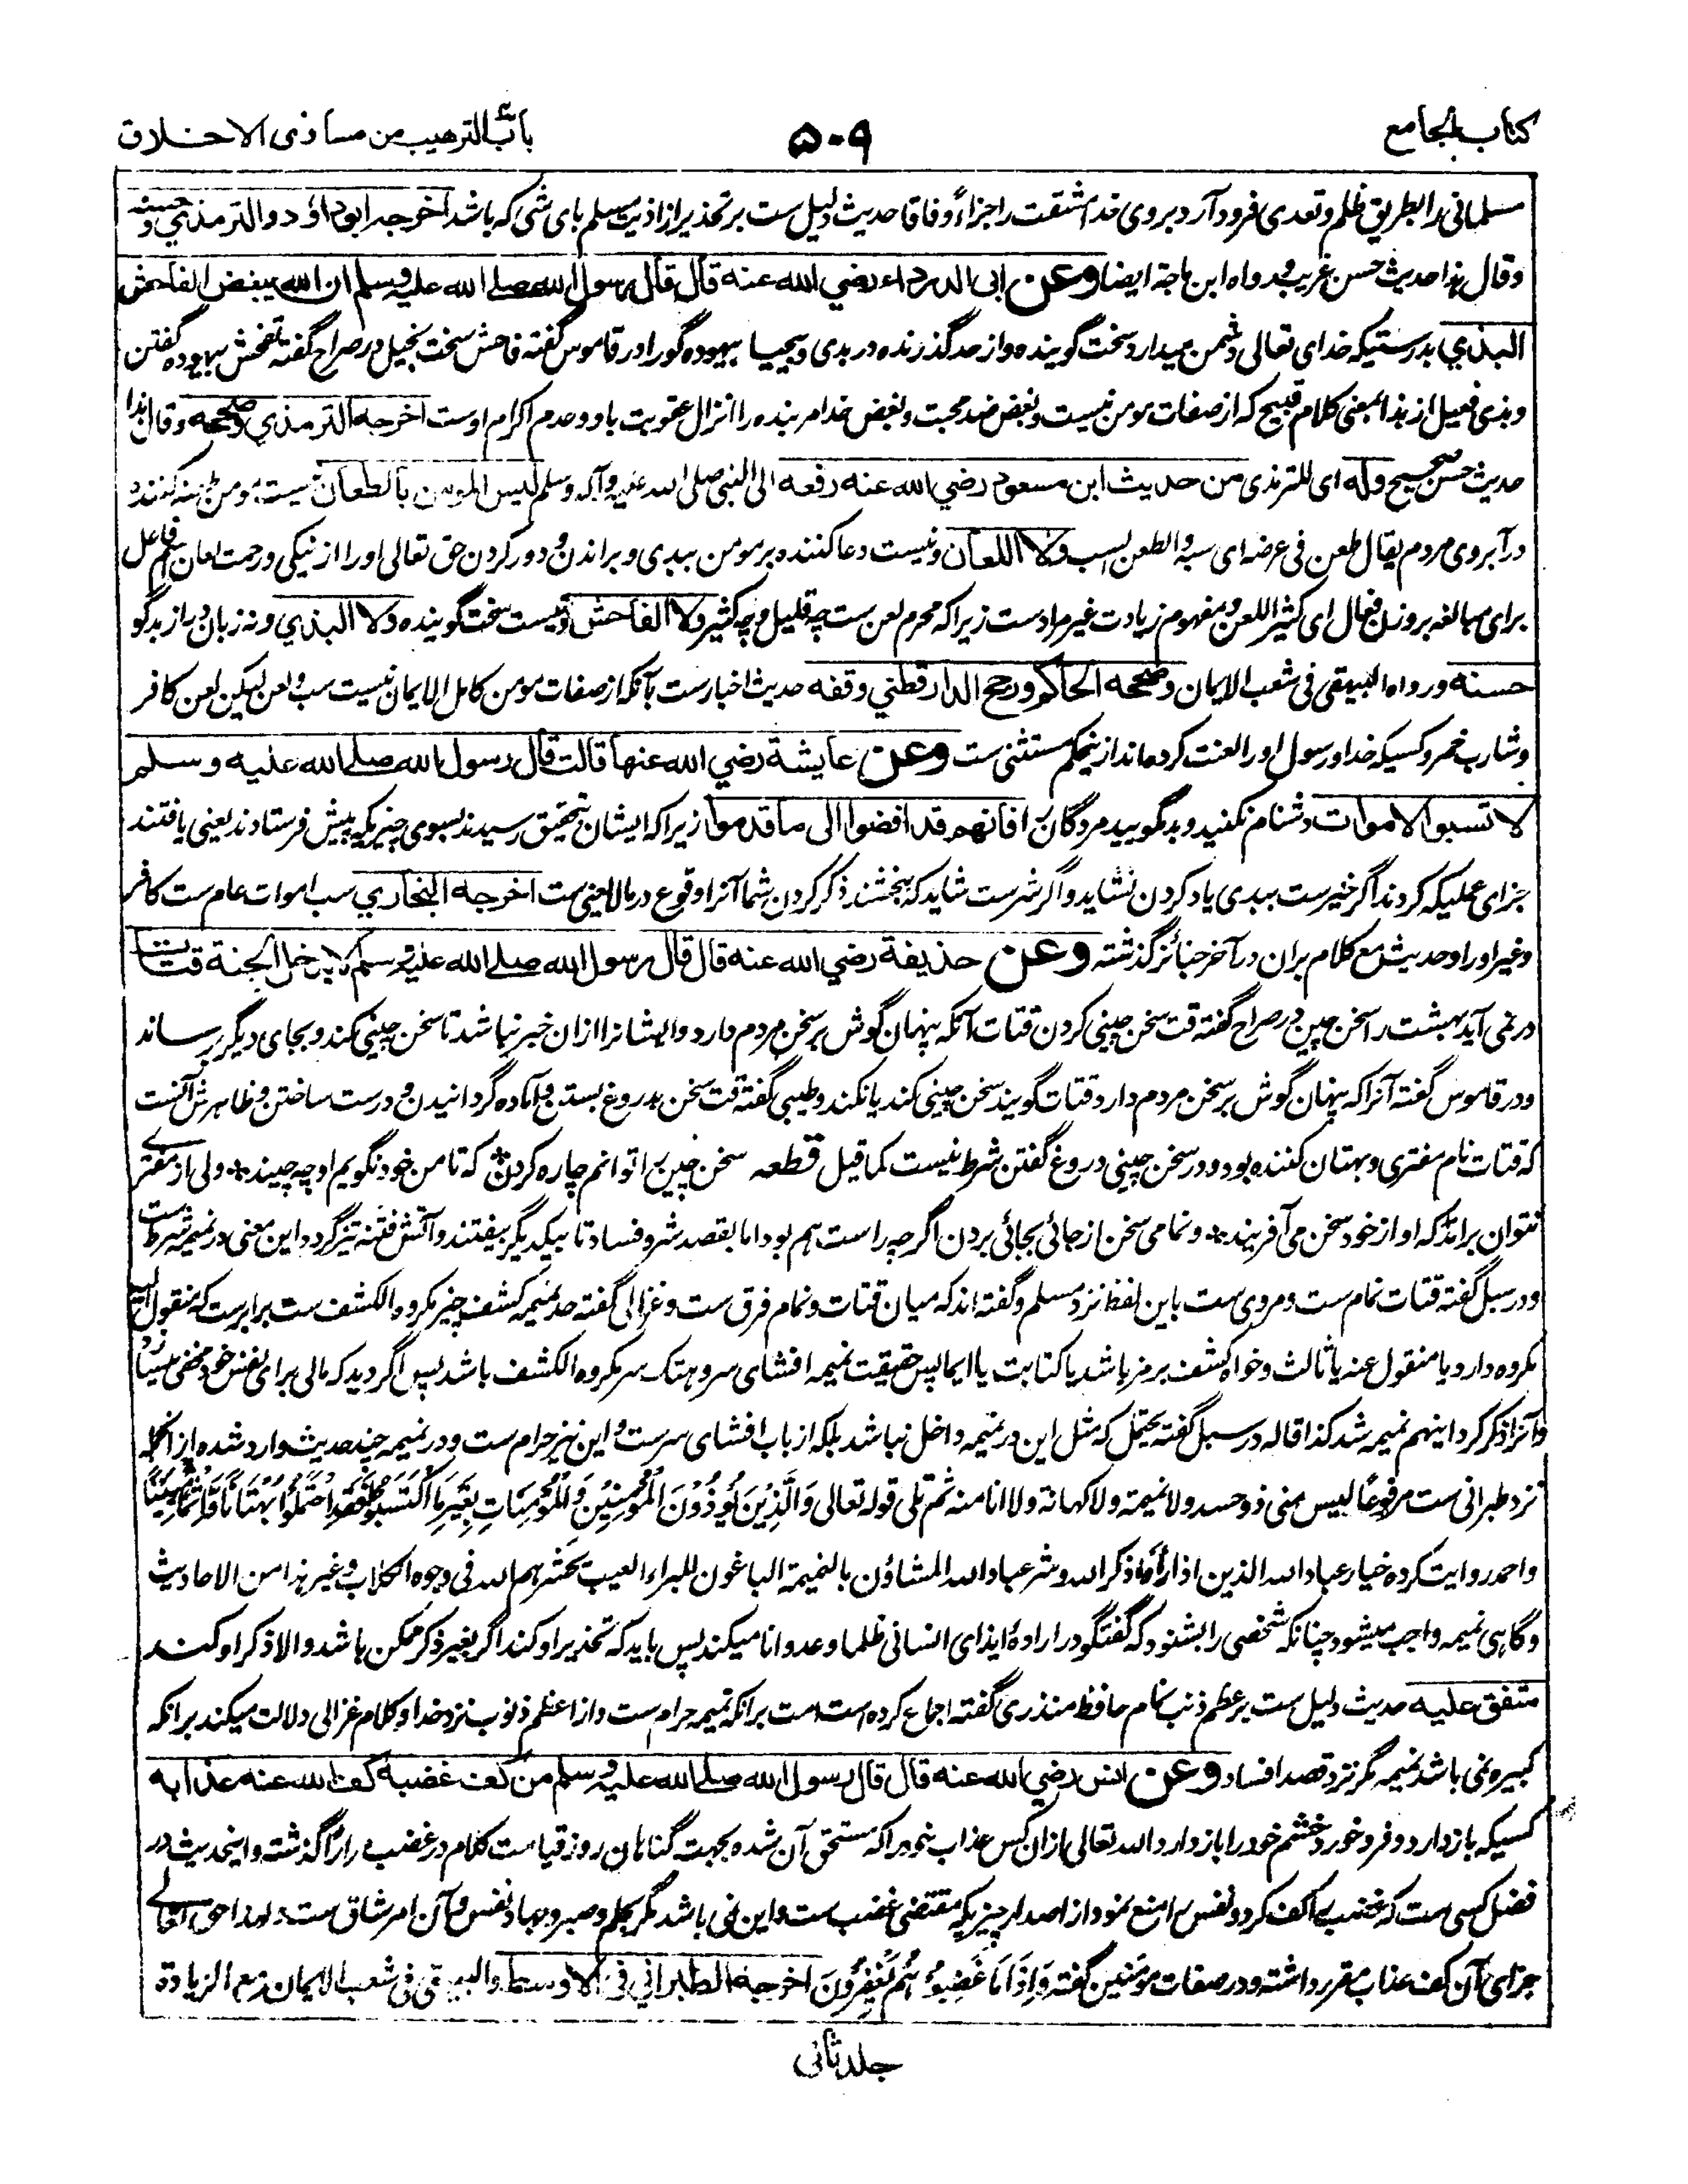 کتاب الجامع
۵۰۹
باب الترهیب من مساوی الاخلاق
مسلمانی را بطریق ظلم و تعدی فرود آرد بروی خدا مشقت را جزاءً وفاقا حدیث دلیل ست بر تحذیر از اذیت مسلم بای شی که باشد اخرجه ابوداؤد والترمذي وحسنه
وقال هذا حدیث حسن غریب ورواه ابن ماجة ایضا وعن ابی الدرداء رضي الله عنه قال قال رسول الله صلے الله علیه وسلم ان الله یبغض الفاحش
البذي بدرستیکه خدای تعالی دشمن میدارد سخت گوینده و از حد گذرنده در بدی و بیحیا بیهوده گو را در قاموس گفته فاحش سخت بخیل و در صراح گفته تفحش بیهوده گفتن
و بذی فعیل از بذا بمعنی کلام قبیح که از صفات مومن نیست و بغض ضد محبت و بغض خدا مر بنده را انزال عقوبت باو و عدم اکرام اوست اخرجه الترمذي وصححه وقال هذا
حدیث حسن صحیح وله ای للترمذی من حدیث ابن مسعود رضي الله عنه رفعه الی النبی صلی الله علیه وآله وسلم لیس المؤمن بالطعان نیست مومن طعنه کننده
در آبروی مردم یقال طعن فی عرضه ای سبه والطعن السب ولا اللعان و نیست دعا کننده بر مومن ببدی و براندن و دور کردن حق تعالی او را از نیکی و رحمت لعان اسم فاعل
برای مبالغه بر وزن فعال ای کثیر اللعن و مفهوم زیادت غیر مرادست زیرا که محرم لعن ست چه قلیل و چه کثیر ولا الفاحش و نیست سخت گوینده ولا البذي و نه زبان دراز بدگو
حسنه ورواه البیهقی فی شعب الایمان وصححه الحاکم ورجح الدارقطني وقفه حدیث اخبارست بآنکه از صفات مومن کامل الایمان نیست سب و لعن لیکن لعن کافر
و شارب خمر و کسیکه خدا و رسول او را لعنت کرده اند ازینحکم مستثنی ست وعن عایشة رضي الله عنها قالت قال رسول الله صلے الله علیه وسلم
لا تسبوا الاموات دشنام نکنید و بد مگویید مردگان را فانهم قد افضوا الی ما قدموا زیرا که ایشان بتحقیق رسیدند بسوی چیزیکه پیش فرستادند یعنی یافتند
جزای عملیکه کردند اگر خیرست ببدی یاد کردن نشاید و اگر شرست شاید که بخشند ذکر کردن شما آنرا وقوع در مالایعنی ست اخرجه البخاري سب اموات عام ست کافر
و غیر او را و حدیث مع کلام بران در آخر جنائز گذشته وعن حذیفة رضي الله عنه قال قال رسول الله صلے الله علیه وسلم لا یدخل الجنة قتات
در نمی آید بهشت را سخن چین در صراح گفته قت سخن چینی کردن قتات آنکه پنهان گوش بر سخن مردم دارد و ایشانرا ازان خبر نباشد تا سخن چینی کند و بجای دیگر رساند
و در قاموس گفته آنرا که پنهان گوش بر سخن مردم دارد قتات گویند سخن چینی کند یا نکند و طیبی گفته قت سخن بدروغ بستن و آماده گردانیدن و درست ساختن و ظاهرش آنست
که قتات نام مفتری و بهتان کننده بود و در سخن چینی دروغ گفتن شرط نیست کما قیل قطعه سخن چین را توانم چاره کردن * که تا من خود نگویم او چه چیند * ولی از مفتر
نتوان براند که او از خود سخن می آفریند * و نمامی سخن از جائی بجائی بردن اگرچه راست هم بود اما بقصد شر و فساد تا بیکدیگر بیفتند و آتش فتنه تیز گردد و این معنی در نمیمه شرطست
و در سبل گفته قتات نمام ست و مروی ست باین لفظ نزد مسلم و گفته اند که میان قتات و نمام فرق ست و غزالی گفته حد نمیمه کشف چیز مکروه الکشف ست برابرست که منقول الیه
مکروه دارد یا منقول عنه یا ثالث و خواه کشف برمز باشد یا کتابت یا ایما پس حقیقت نمیمه افشای سر و هتک سر مکروه الکشف باشد پس اگر دید که مالی برای نفس خود مخفی میسازد
و آنرا ذکر کرد اینهم نمیمه شد کذا قاله در سبل گفته یحتمل که مثل این در نمیمه داخل نباشد بلکه از باب افشای سرست و این نیز حرام ست و در نمیمه چند حدیث وارد شده از انجمله
نزد طبرانی ست مرفوعًا لیس منی ذو حسد ولا نمیمة ولا کهانة ولا انا منه ثم تلی قوله تعالی وَالَّذِیْنَ یُؤْذُوْنَ الْمُؤْمِنِیْنَ وَالْمُؤْمِنَاتِ بِغَیْرِ مَا اکْتَسَبُوْا فَقَدِ احْتَمَلُوْا بُهْتَانًا وَّاِثْمًا مُّبِیْنًا
و احمد روایت کرده خیار عباد الله الذین اذا رأوا ذکر الله وشر عباد الله المشاؤن بالنمیمة الباغون للبراء العیب یحشرهم الله فی وجوه الکلاب وغیر هذا من الاحادیث
و گاهی نمیمه واجب میشود چنانکه شخصی را بشنود که گفتگو در ارادۀ ایذای انسانی ظلما و عدوانا میکند پس باید که تحذیر او کند اگر بغیر ذکر ممکن باشد والا ذکر او کند
متفق علیه حدیث دلیل ست بر عظم ذنب نمام حافظ منذری گفته اجماع کرده است امت بر آنکه نمیمه حرام ست و از اعظم ذنوب نزد خدا و کلام غزالی دلالت میکند برانکه
کبیره نمی باشد نمیمه مگر نزد قصد افساد وعن انس رضي الله عنه قال قال رسول الله صلے الله علیه وسلم من کف غضبه کف الله عنه عذابه
کسیکه باز دارد و فرو خورد خشم خود را باز دارد الله تعالی ازان کس عذاب خود را که مستحق آن شده بجهت گناهان روز قیامت کلام در غضب مرارًا گذشته و اینحدیث در
فضل کسی ست که غضب را کف کرد و نفس را منع نمود از اصدار چیزیکه مقتضی غضب ست و این نمی باشد مگر بحلم و صبر و جهاد نفس و آن امر شاق ست ولهذا حق تعالے
جزای آن کف عذاب مقرر داشته و در صفات مومنین گفته وَاِذَا مَا غَضِبُوْا هُمْ یَغْفِرُوْنَ اخرجه الطبراني في الاوسط والبیهقی فی شعب الایمان مع الزیادة
جلد ثانی